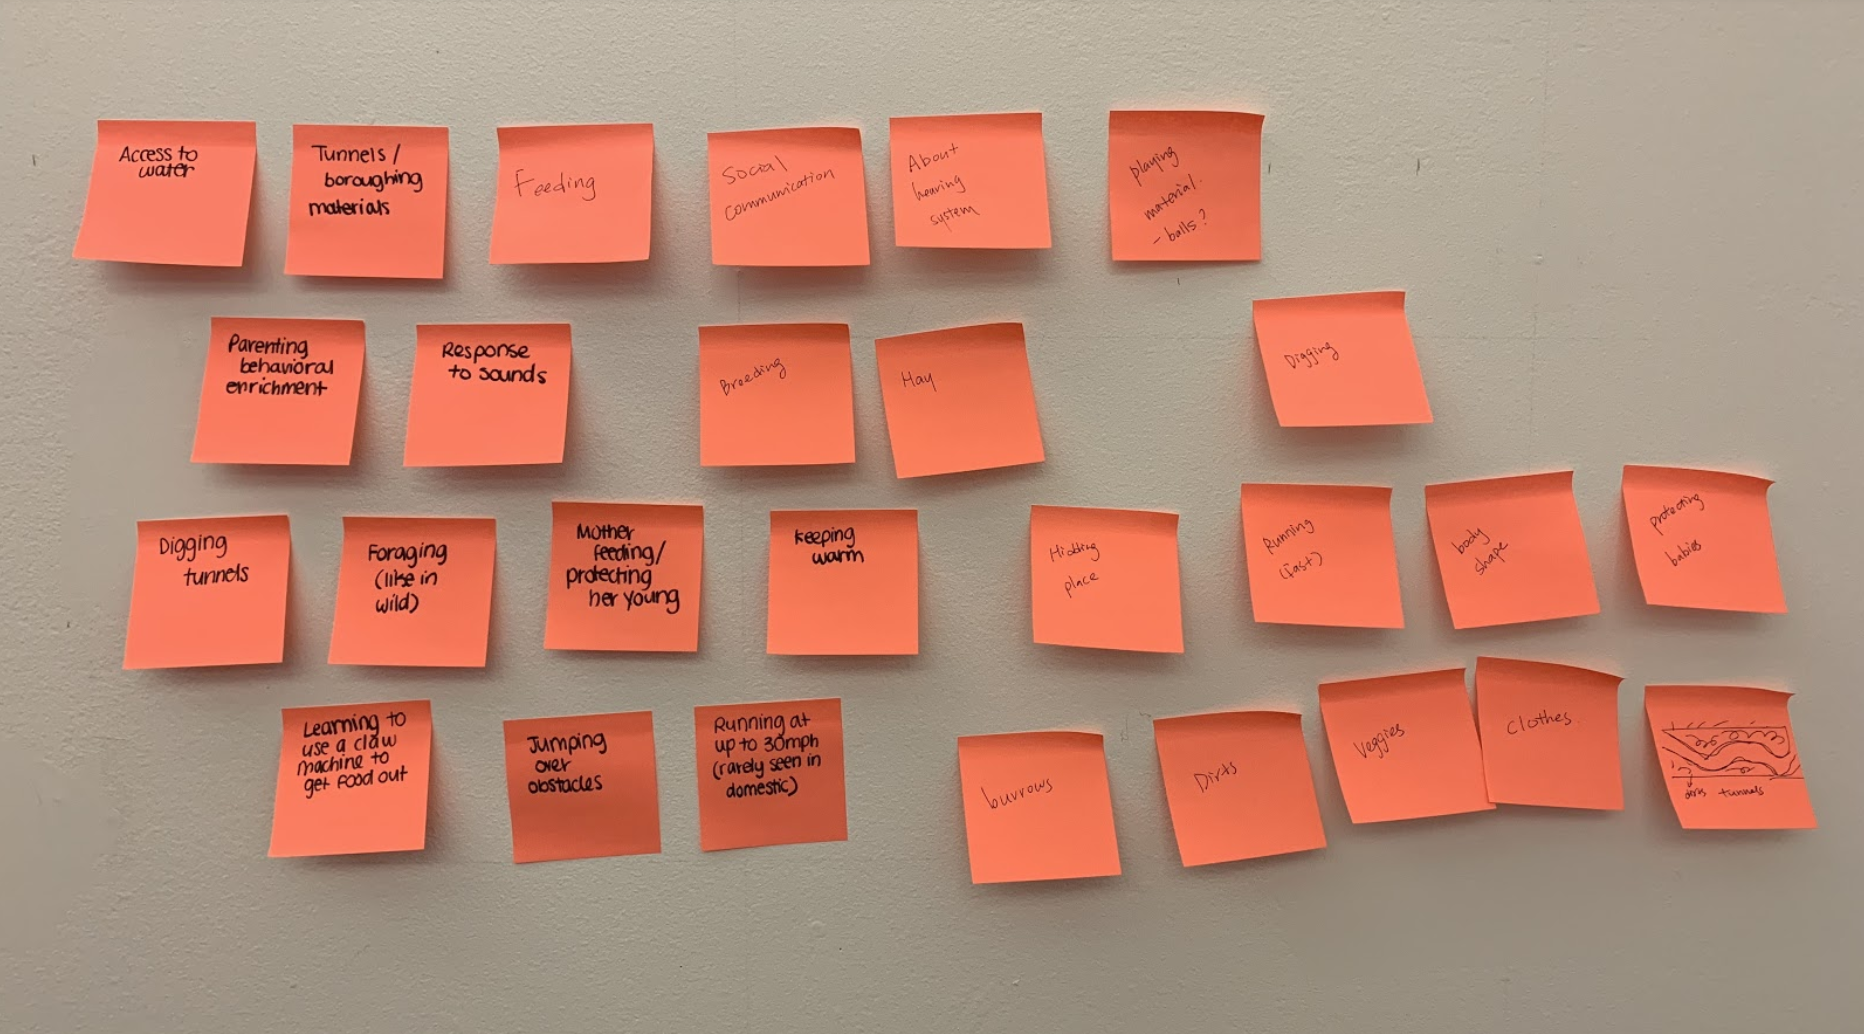 Access to
water
Tunnels /
boroughing
materials
Feeding
Social
communication
About
hearing
system
playing
material.
- balls?
Parenting
behavioral
enrichment
Response
to sounds
Breeding
Hay
Digging
Digging
tunnels
Foraging
(like in
wild)
Mother
feeding/
protecting
her young
keeping
warm
Hidding
place
Running
(fast)
body
shape
protecting
babies
Learning to
use a claw
machine to
get food out
Jumping
over
obstacles
Running at
up to 30mph
(rarely seen in
domestic)
burrows
Dirts
Veggies
Clothes.
tunnels